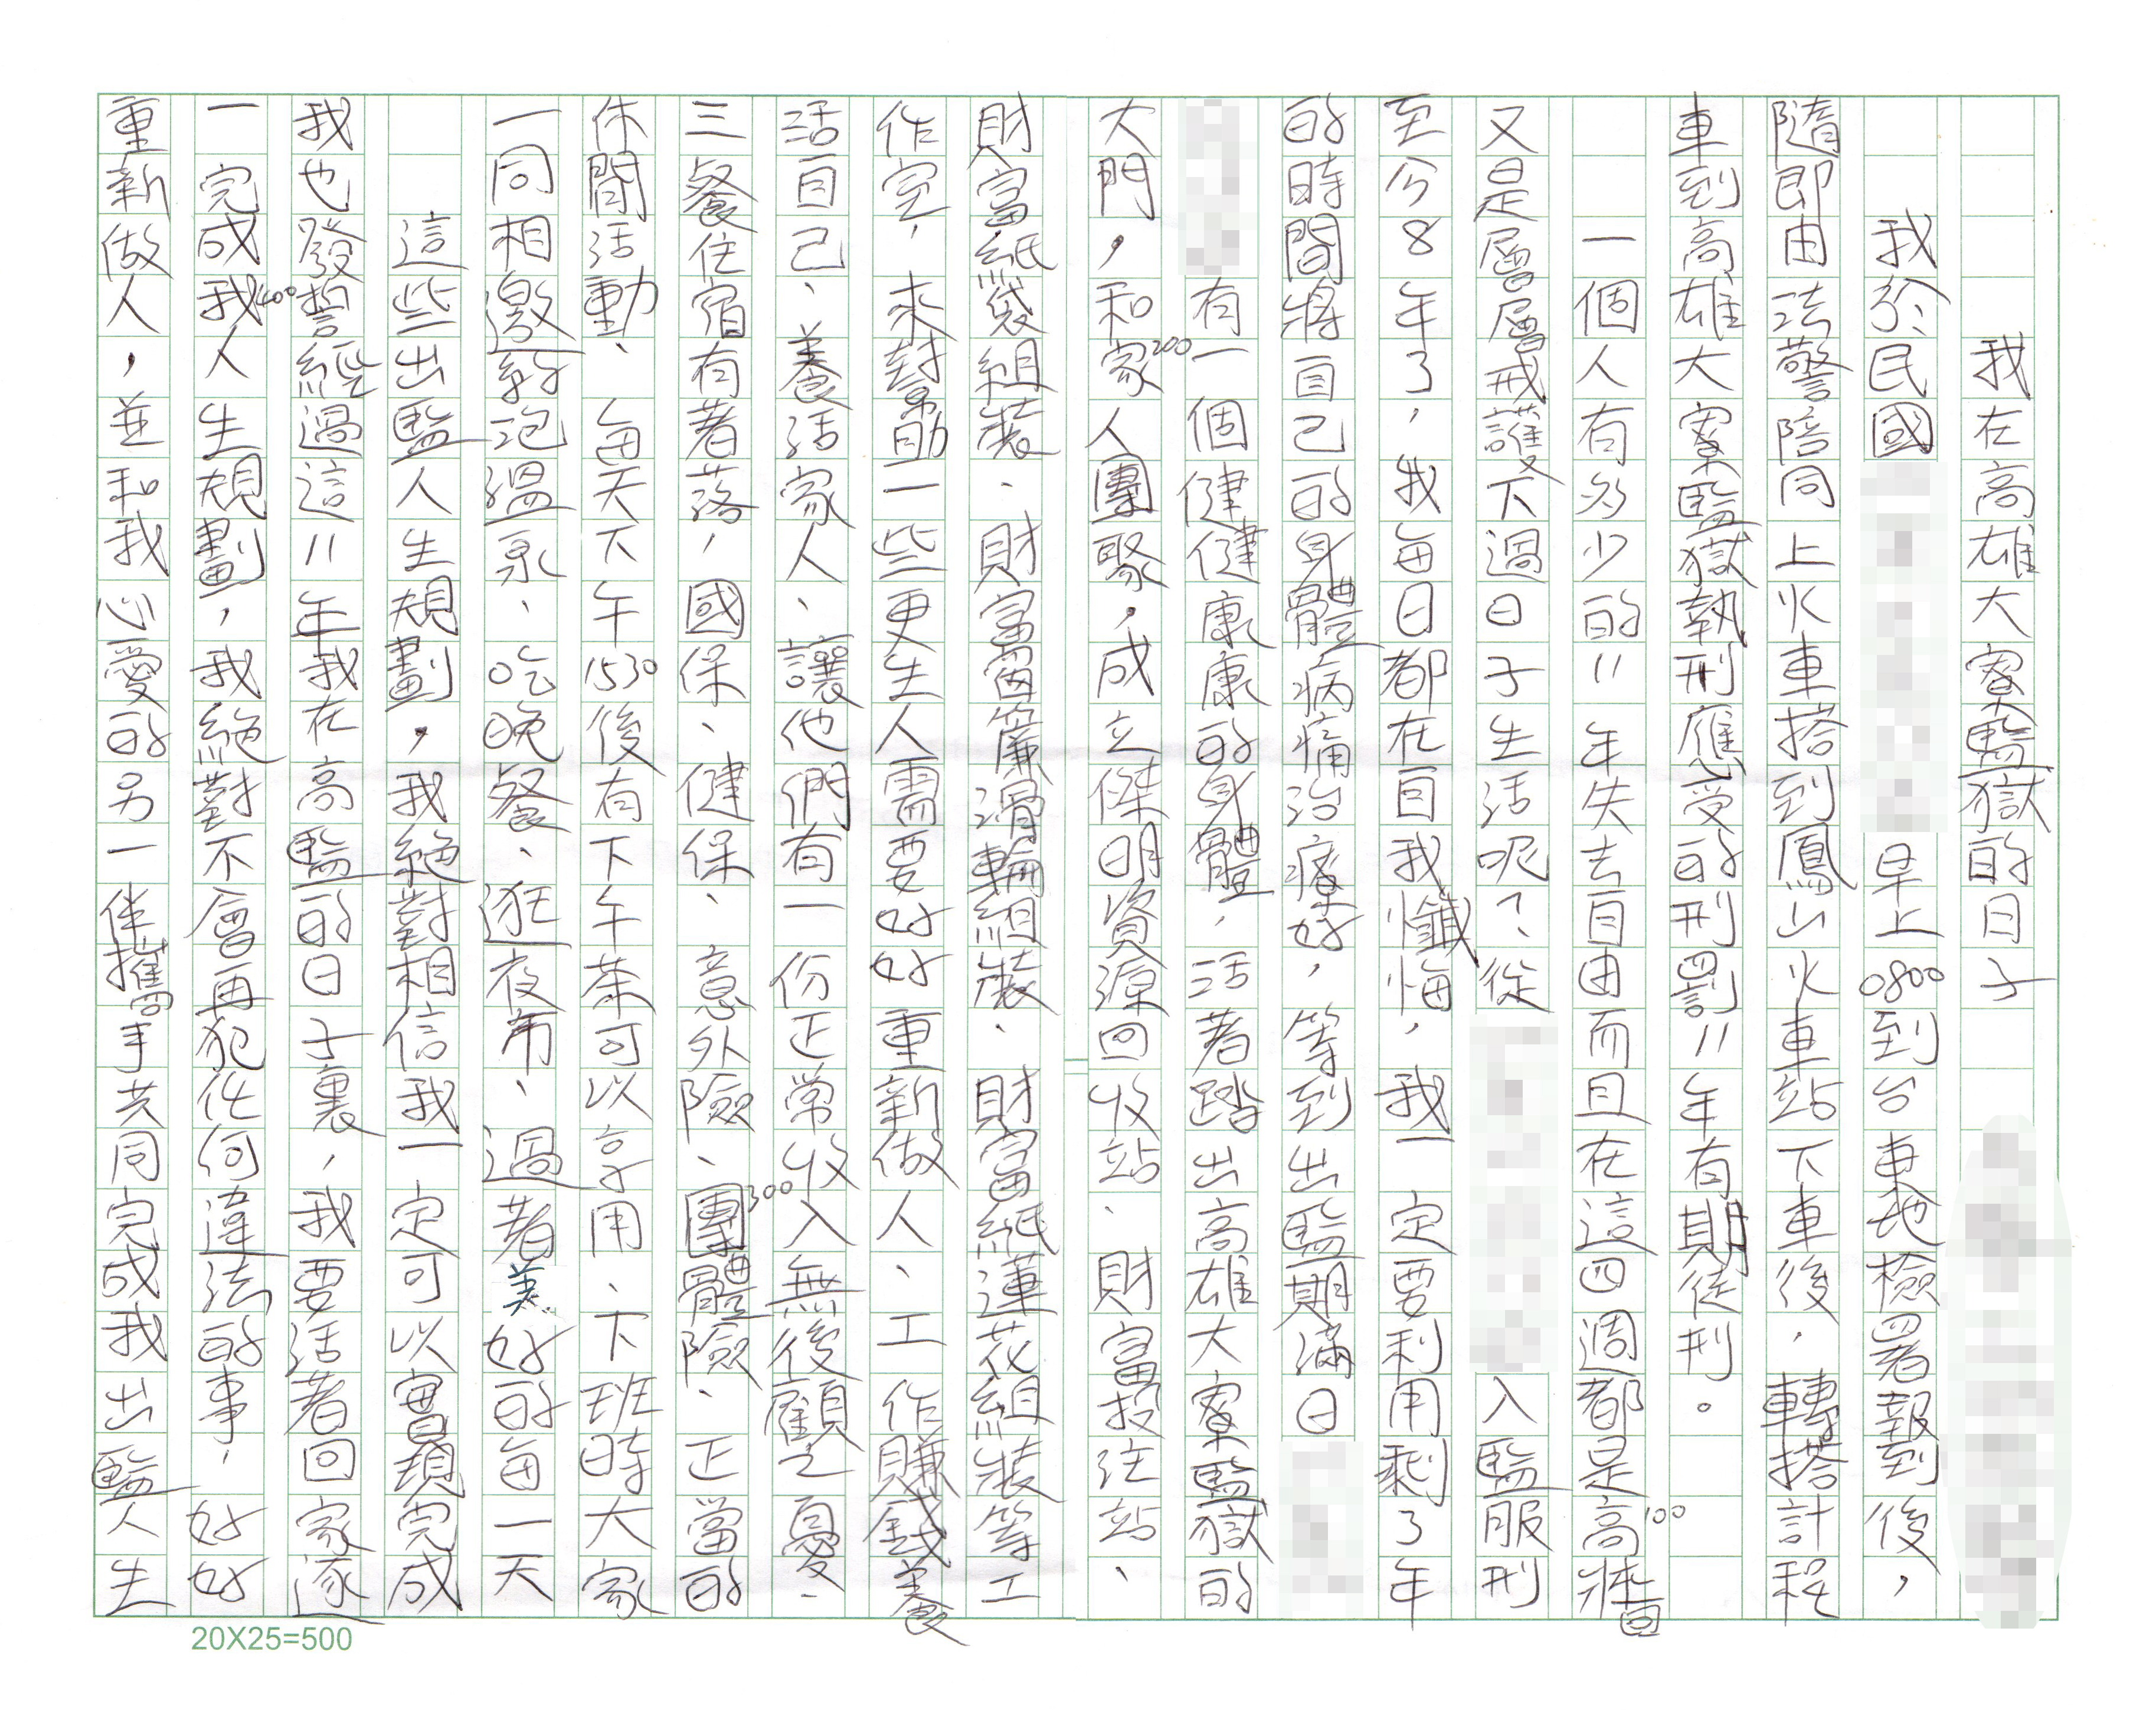 我在高雄大寮監獄的日子
我於民國 早上0800到台東地檢署報到後，
隨即由法警陪同上火車搭到鳳山火車站下車後，轉搭計程
車到高雄大寮監獄執刑應受的刑罰11年有期徒刑。
一個人有多少的11年失去自由而且在這四週都是高牆
100
又是層層戒護下過日子生活呢？從 入監服刑
至今8年了，我每日都在自我懺悔，我一定要利用剩了年
的時間將自己的身體病痛治療好，等到出監期滿日
有一個健健康康的身體，活著踏出高雄大寮監獄的
大門，和家人團聚，成立傑明資源回收站、財富投注站、
200
財富紙袋組裝、財富窗簾滑輪組裝、財富紙蓮花組裝等工
作室，來幫助一些更生人需要好好重新做人、工作賺錢養
活自己、養活家人、讓他們有一份正常收入無後顧之憂、
三餐住宿有著落，國保、健保、意外險、團體險、正當的
300
休閒活動、每天下午1530後有下午茶可以享用、下班時大家
一同相邀約泡溫泉、吃晚餐、逛夜市、過著美好的每一天
這些出監人生規劃，我絕對相信我一定可以實現完成
我也發誓經過這11年我在高監的日子裏，我要活著回家逐
一完成我人生規劃，我絕對不會再犯任何違法的事，好好
400
重新做人，並和我心愛的另一伴攜手共同完成我出監人生
20X25=500